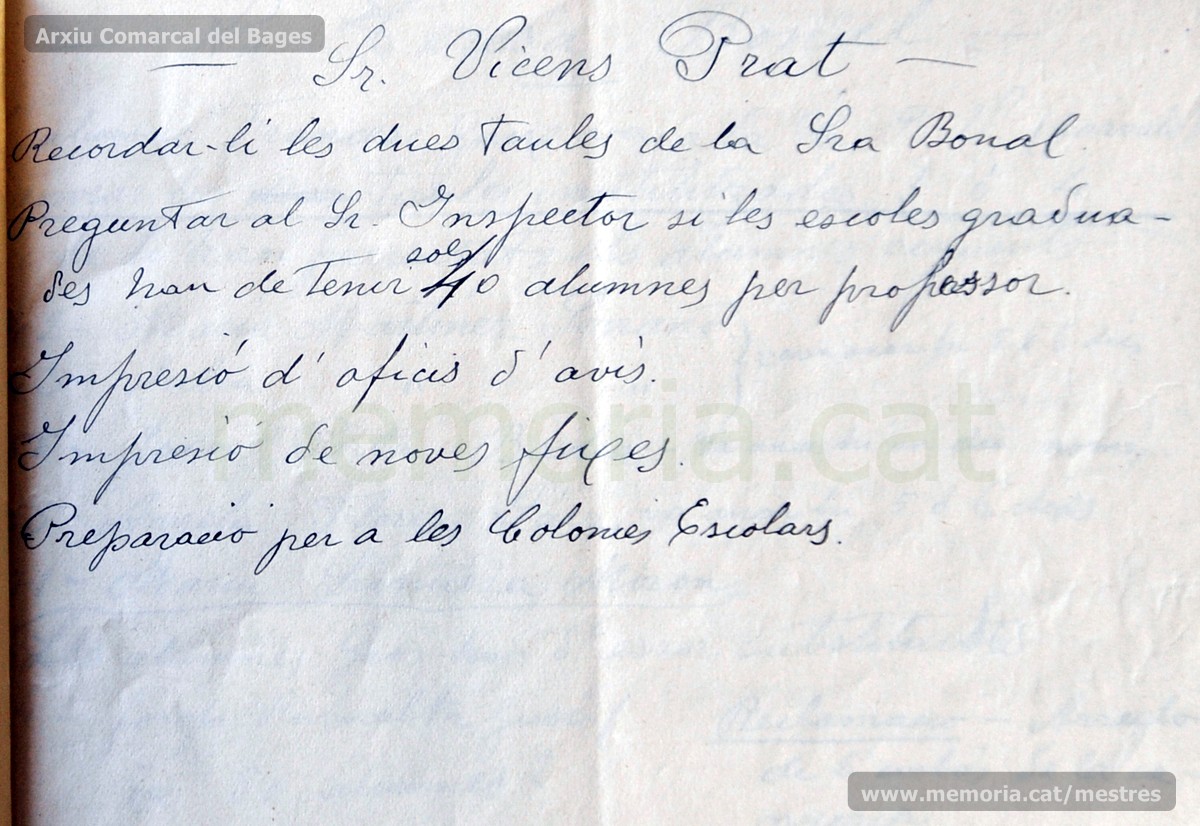 Arxiu Comarcal del Bages
— Sr. Vicens Prat —
Recordar-li les dues taules de la Sra Bonal.
Preguntar al Sr. Inspector si les escoles gradua-
des han de tenir sols 40 alumnes per professor.
Impresió d'oficis d'avís.
Impresió de noves fixes.
Preparació per a les Colonies Escolars.
memoria.cat
www.memoria.cat/mestres